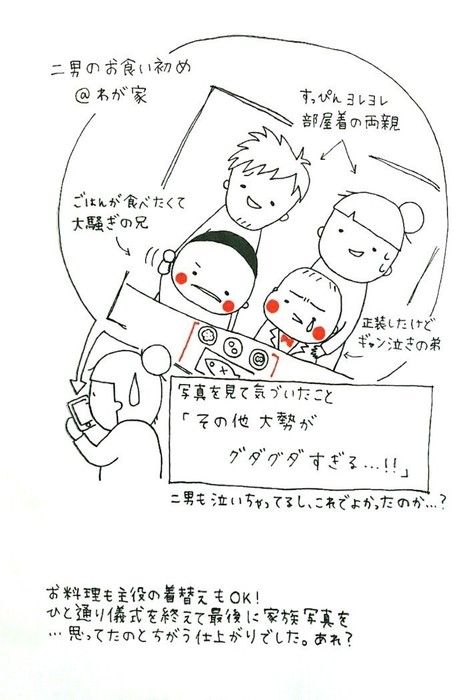 二男のお食い初め
@わが家
すっぴんヨレヨレ
部屋着の両親
ごはんが食べたくて
大騒ぎの兄
正装したけど
ギャン泣きの弟
写真を見て気づいたこと
「その他大勢が
グダグダすぎる…!!」
二男も泣いちゃってるし、これでよかったのか…?
お料理も主役の着替えもOK!
ひと通り儀式を終えて最後に家族写真を
…思ってたのとちがう仕上がりでした。あれ?